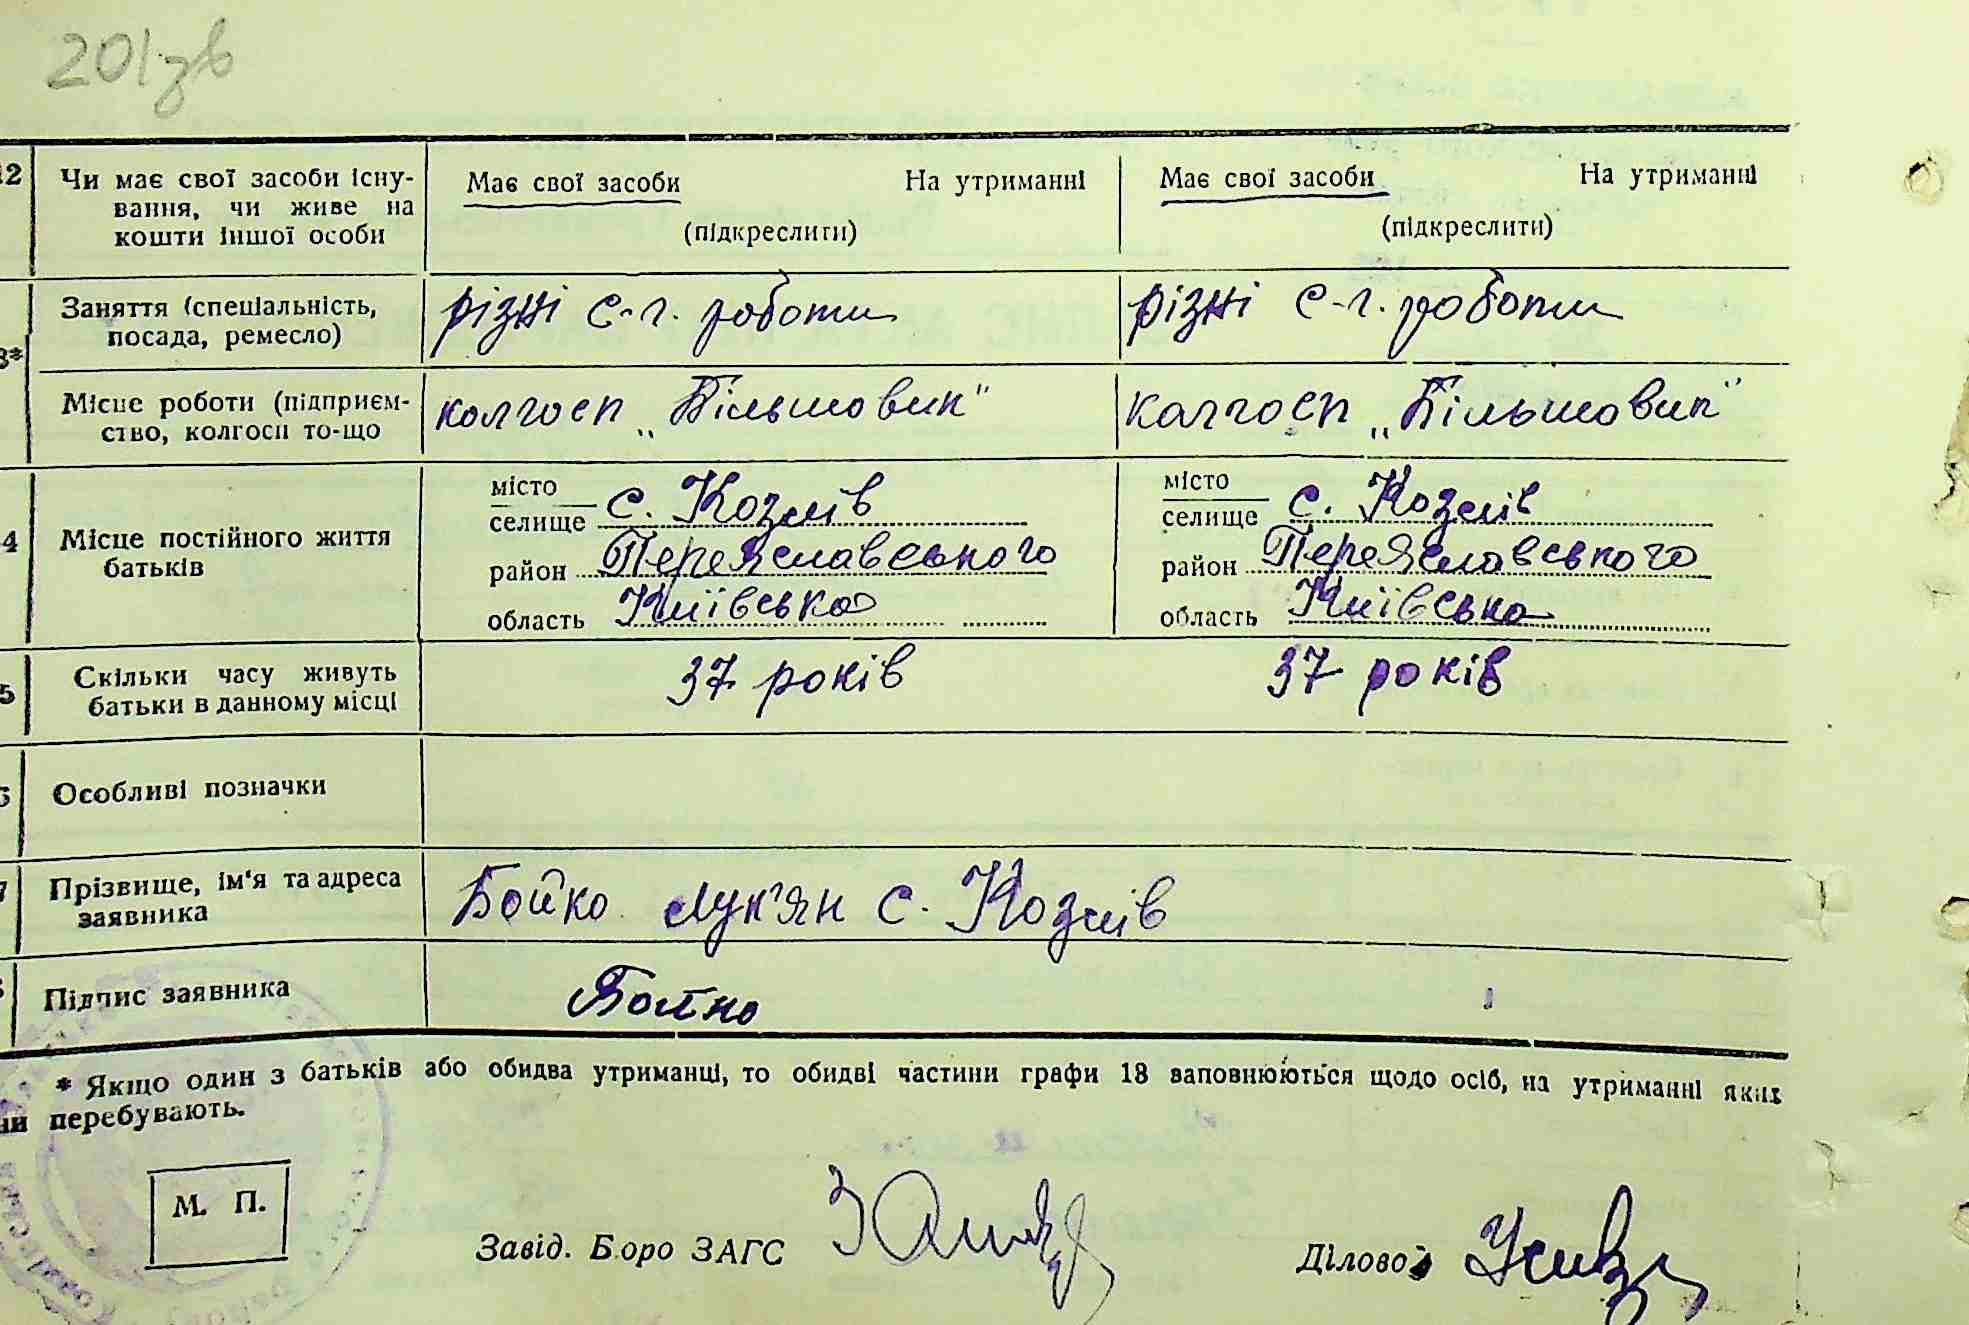 201зв
12 Чи має свої засоби існу- Має свої засоби На утриманні Має свої засоби На утриманні
вання, чи живе на
кошти іншої особи (підкреслити) (підкреслити)
Заняття (спеціальність, різні с-г. роботи різні с-г. роботи
посада, ремесло)
3*
Місце роботи (підприєм- колгосп „Більшовик" колгосп „Більшовик"
ство, колгосп то-що
місто с. Козлів місто с. Козлів
селище селище
4 Місце постійного життя район Переяславського район Переяславського
батьків область Київська область Київська
5 Скільки часу живуть 37 років 37 років
батьки в данному місці
6 Особливі позначки
7 Прізвище, ім'я та адреса Бойко Лук'ян с. Козлів
заявника
Підпис заявника Бойко
* Якщо один з батьків або обидва утриманці, то обидві частини графи 18 заповнюються щодо осіб, на утриманні яких
ни перебувають.
М. П.
Завід. Бюро ЗАГС Діловод